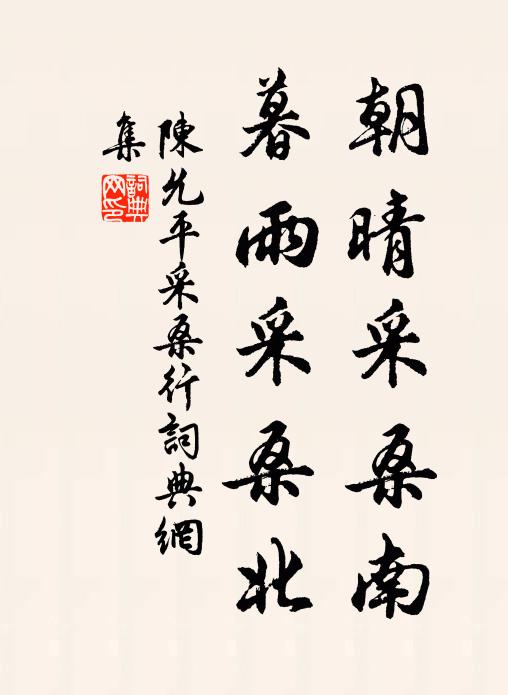 朝晴采桑南
暮雨采桑北
陳允平采桑行詞典網
集
詞典網印